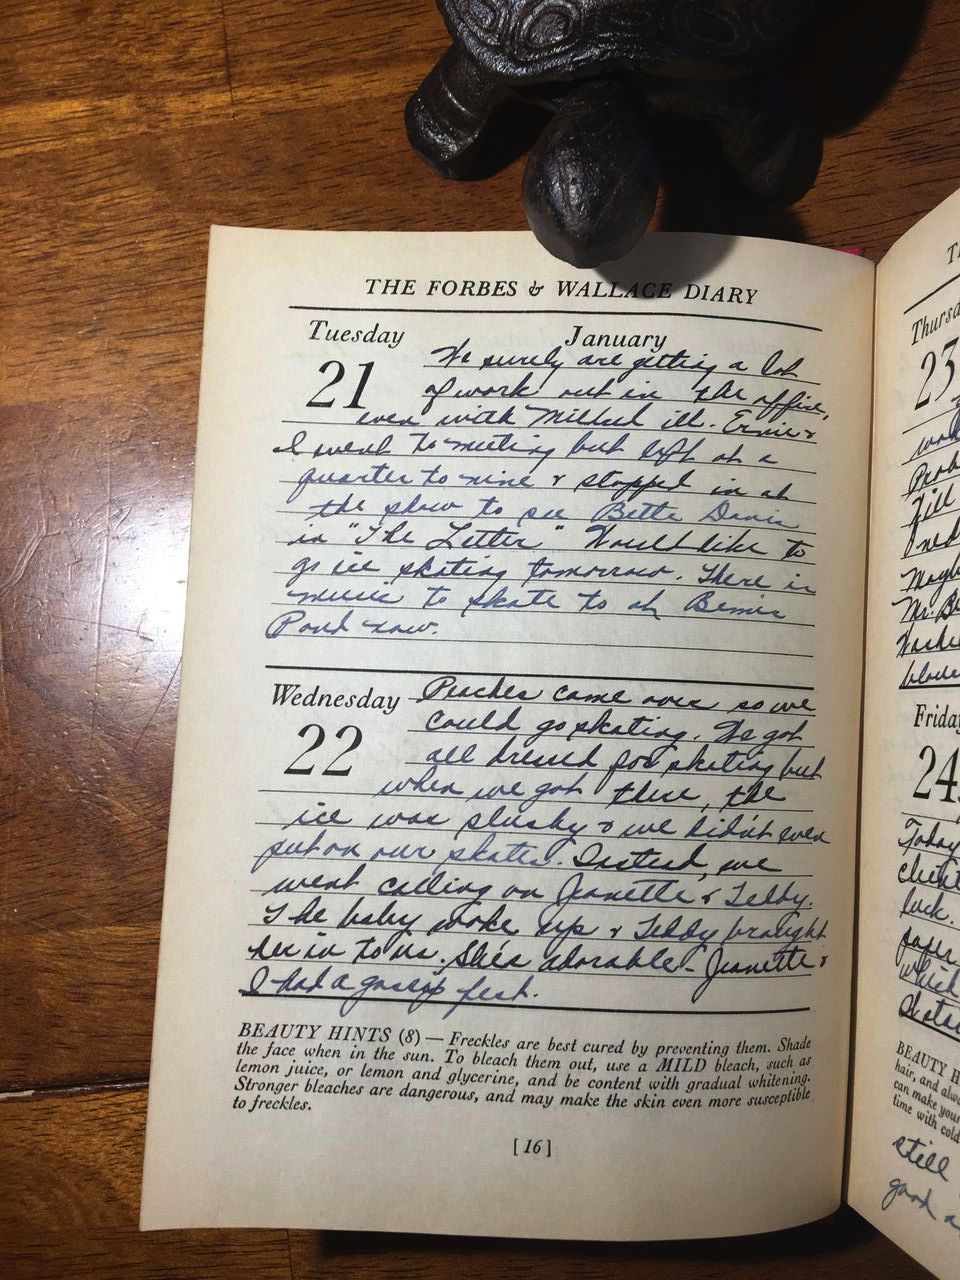 THE FORBES & WALLACE DIARY
Tuesday January
21 We surely are getting a lot
of work out in the office,
even with Mildred ill. Ernie &
I went to meeting but left at a
quarter to nine & stopped in at
the show to see Bette Davis
in "The Letter" Would like to
go ice skating tomorrow. There is
music to skate to at Bemis
Pond now.
Wednesday Peaches came over so we
22 could go skating. We got
all dressed for skating but
when we got there, the
ice was slushy & we didn't even
put on our skates. Instead, we
went calling on Jeanette & Teddy.
The baby woke up & Teddy brought
her in to us. She's adorable - Jeanette &
I had a gossip fest.
BEAUTY HINTS (8) — Freckles are best cured by preventing them. Shade
the face when in the sun. To bleach them out, use a MILD bleach, such as
lemon juice, or lemon and glycerine, and be content with gradual whitening.
Stronger bleaches are dangerous, and may make the skin even more susceptible
to freckles.
[ 16 ]
Thursd
23
Prob
Fill
need
Mayb
Mr. Be
Friday
24
Today
client
luck.
paper
which
BEAUTY H
hair, and alwa
can make your
time with cold
still
good a